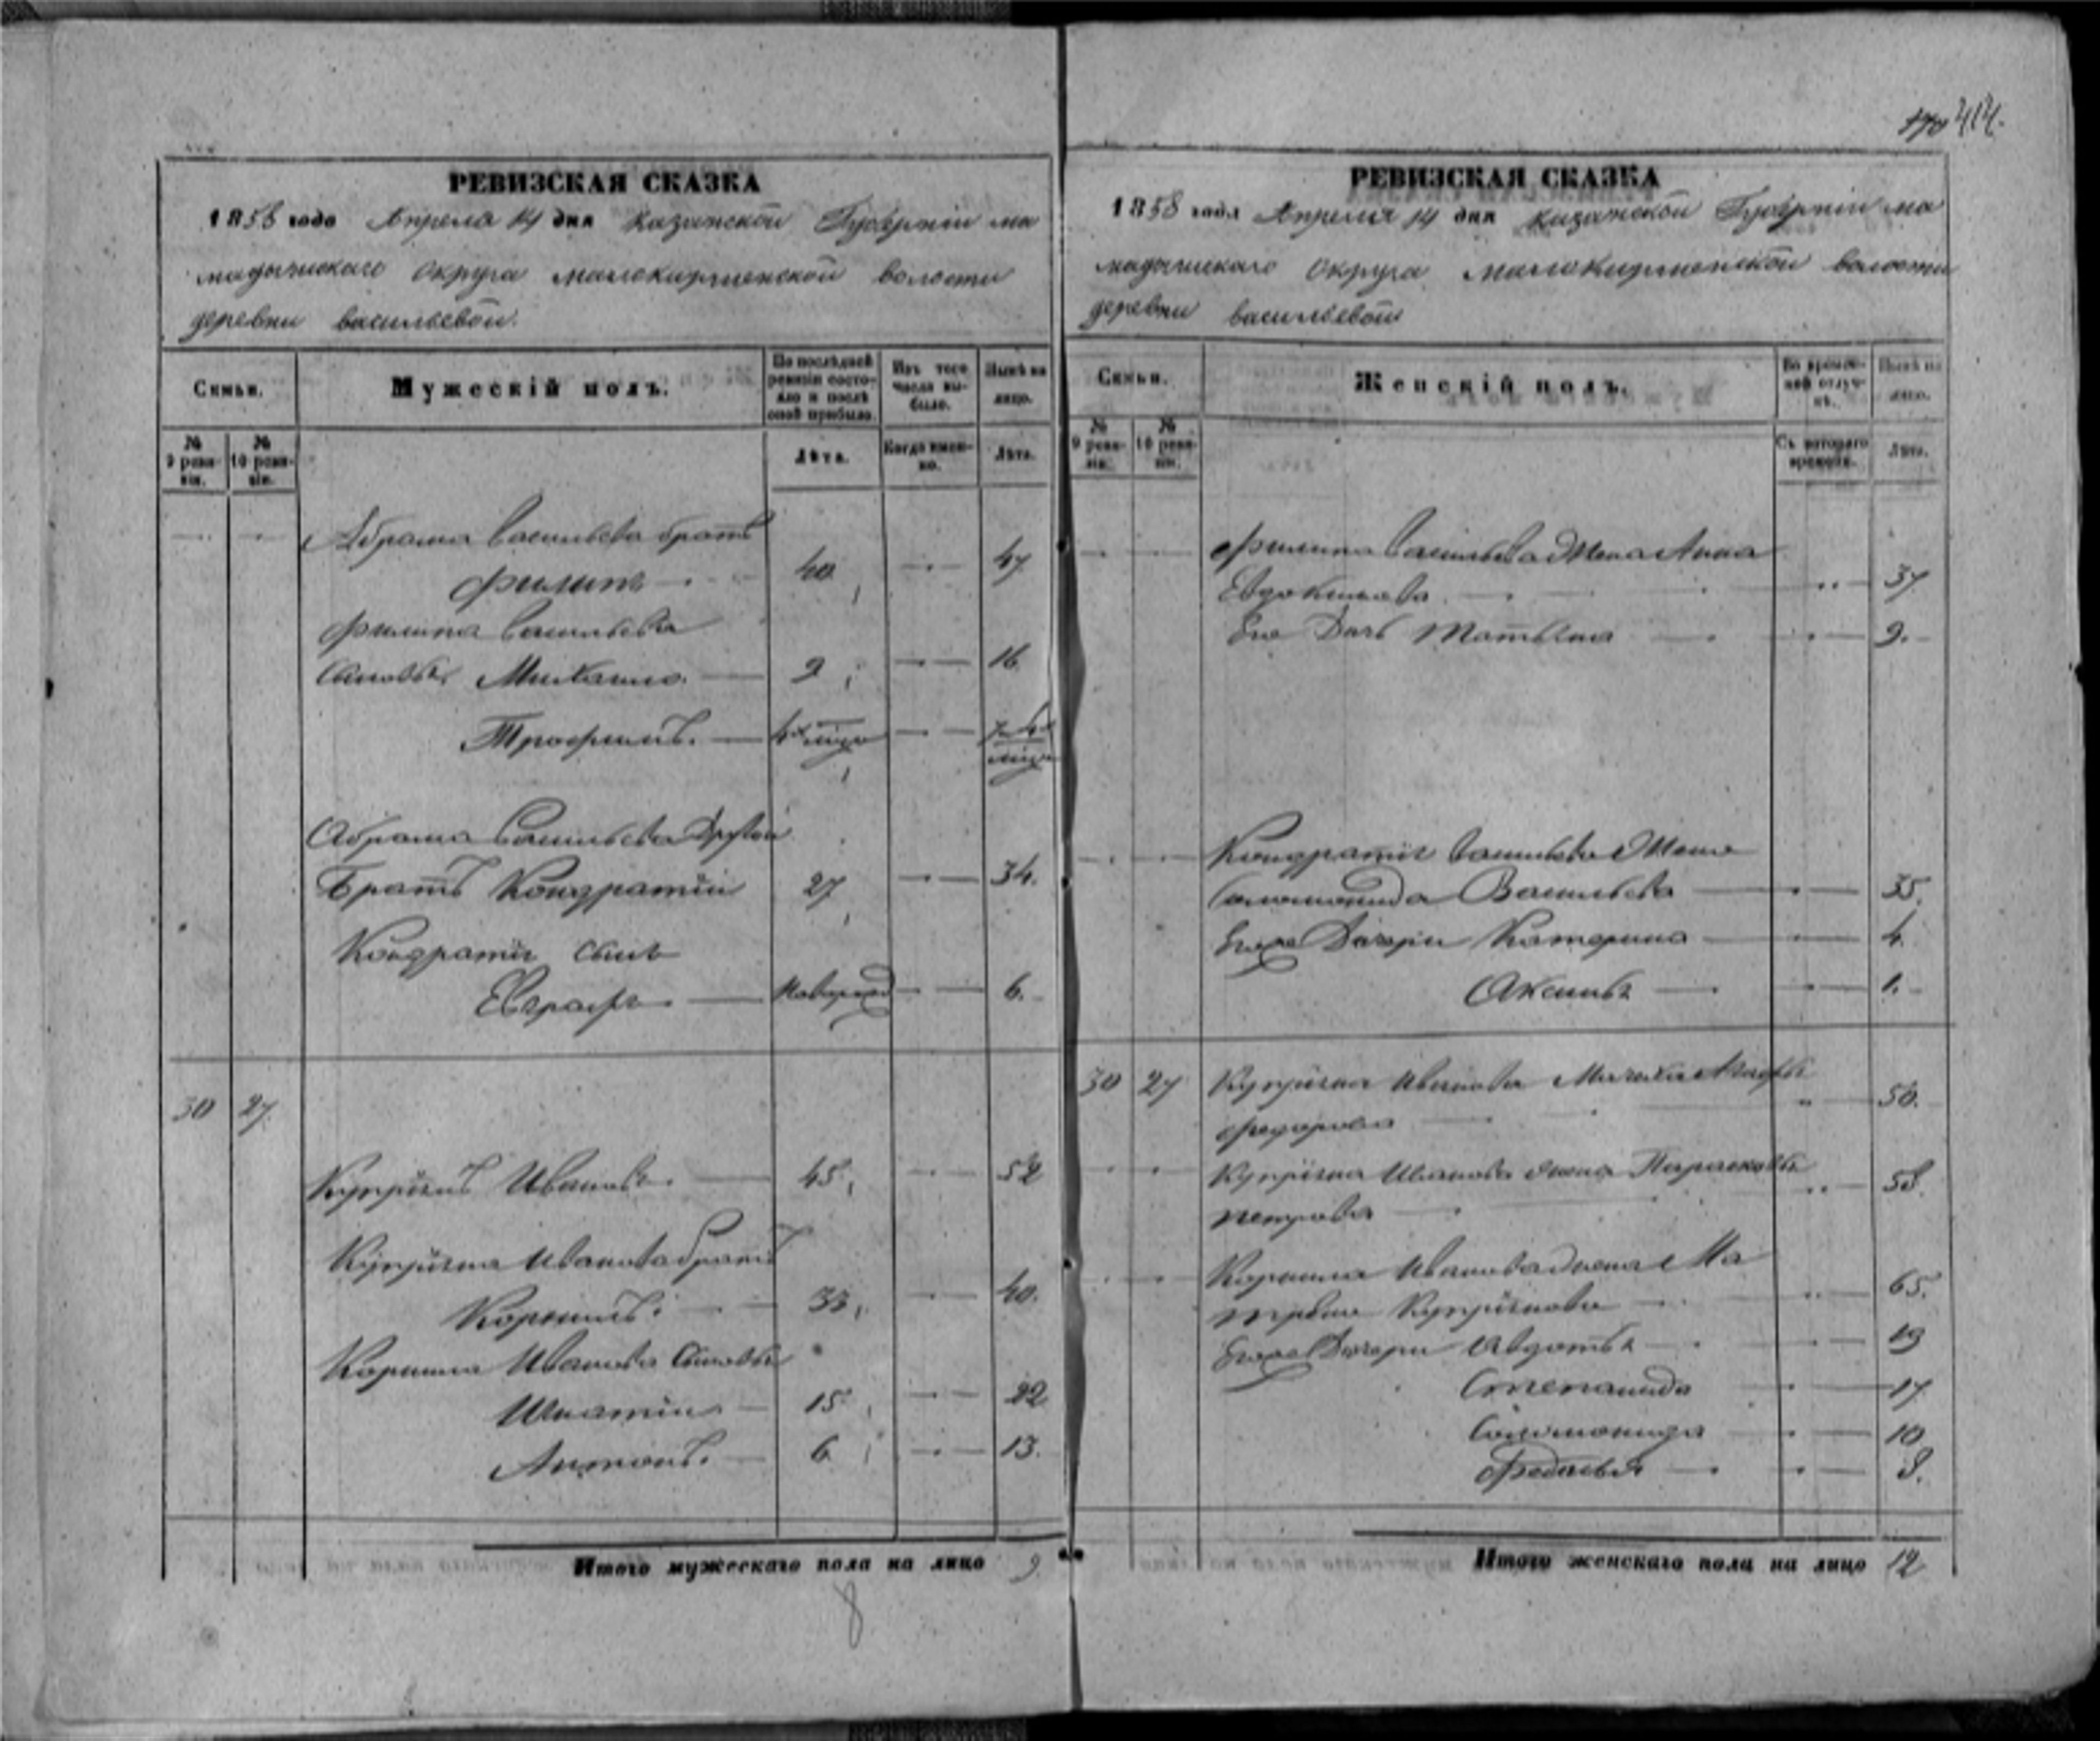 414.
РЕВИЗСКАЯ СКАЗКА
1858 года Апреля 14 дня Казанской Губерніи ма
мадышскаго округа малокирменской волости
деревни васильевой.
Семьи.
Мужескій полъ.
По послѣдней ревизіи состояло и послѣ оной прибыло.
Изъ того числа выбыло.
Нынѣ на лицо.
№ 9 ревизіи.
№ 10 ревизіи.
Лѣта.
Когда именно.
Лѣта.
Абрама Васильева братъ
Филипъ 40 47
Филипа Васильева
Сыновья Михаило 9 16
Трофимъ. 4х
Абрама Васильева Другой
Братъ Кондратій 27 34.
Кондратія сынъ
Евграфъ 6.
30 27
Купріянъ Ивановъ 45 52
Купріяна Иванова братъ
Корнилъ 33 40.
Корнила Иванова Сыновья
Игнатій 15 22
Антонъ. 6 13.
Итого мужескаго пола на лицо 9.
8
РЕВИЗСКАЯ СКАЗКА
1858 года Апреля 14 дня Казанской Губерніи ма
мадышскаго округа малокирменской волости
деревни васильевой
Семьи.
Женскій полъ.
Во временной отлучкѣ.
Нынѣ на лицо.
№ 9 ревизіи.
№ 10 ревизіи.
Съ котораго времени.
Лѣта.
Филипа Васильева Жена Анна
Евдокимова 37
Его Дочь Матрена 9.
Кондратія Васильева Жена
Соломонида Васильева 35.
Его Дочери Катерина 4.
Аксинья 1.
30 27 Купріяна Иванова Мачиха
Федорова 50.
Купріяна Иванова жена Парасковья
Петрова 58.
Корнила Иванова жена Ма
трена Купріянова 65.
Его Дочери Авдотья 19
Степанида 17
Соломонида 10
Федосья
Итого женскаго пола на лицо 12